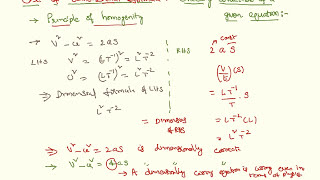 given equation:-
→ Principle of homogenity
→ V² - u² = 2as
LHS V² = (LT⁻¹)² = L²T⁻²
U² = (LT⁻¹)² = L²T⁻²
⇒ Dimensional formula of LHS
L²T⁻²
RHS
const
2 a s
(V/t)(s)
LT⁻¹/T · S
= LT⁻²(L)
= L²T⁻²
= dimensions of RHS
⇒ V² - u² = 2as is dimensionally correct
→ V² - u² = 4as
→ A dimensionally wrong equation is wrong even in